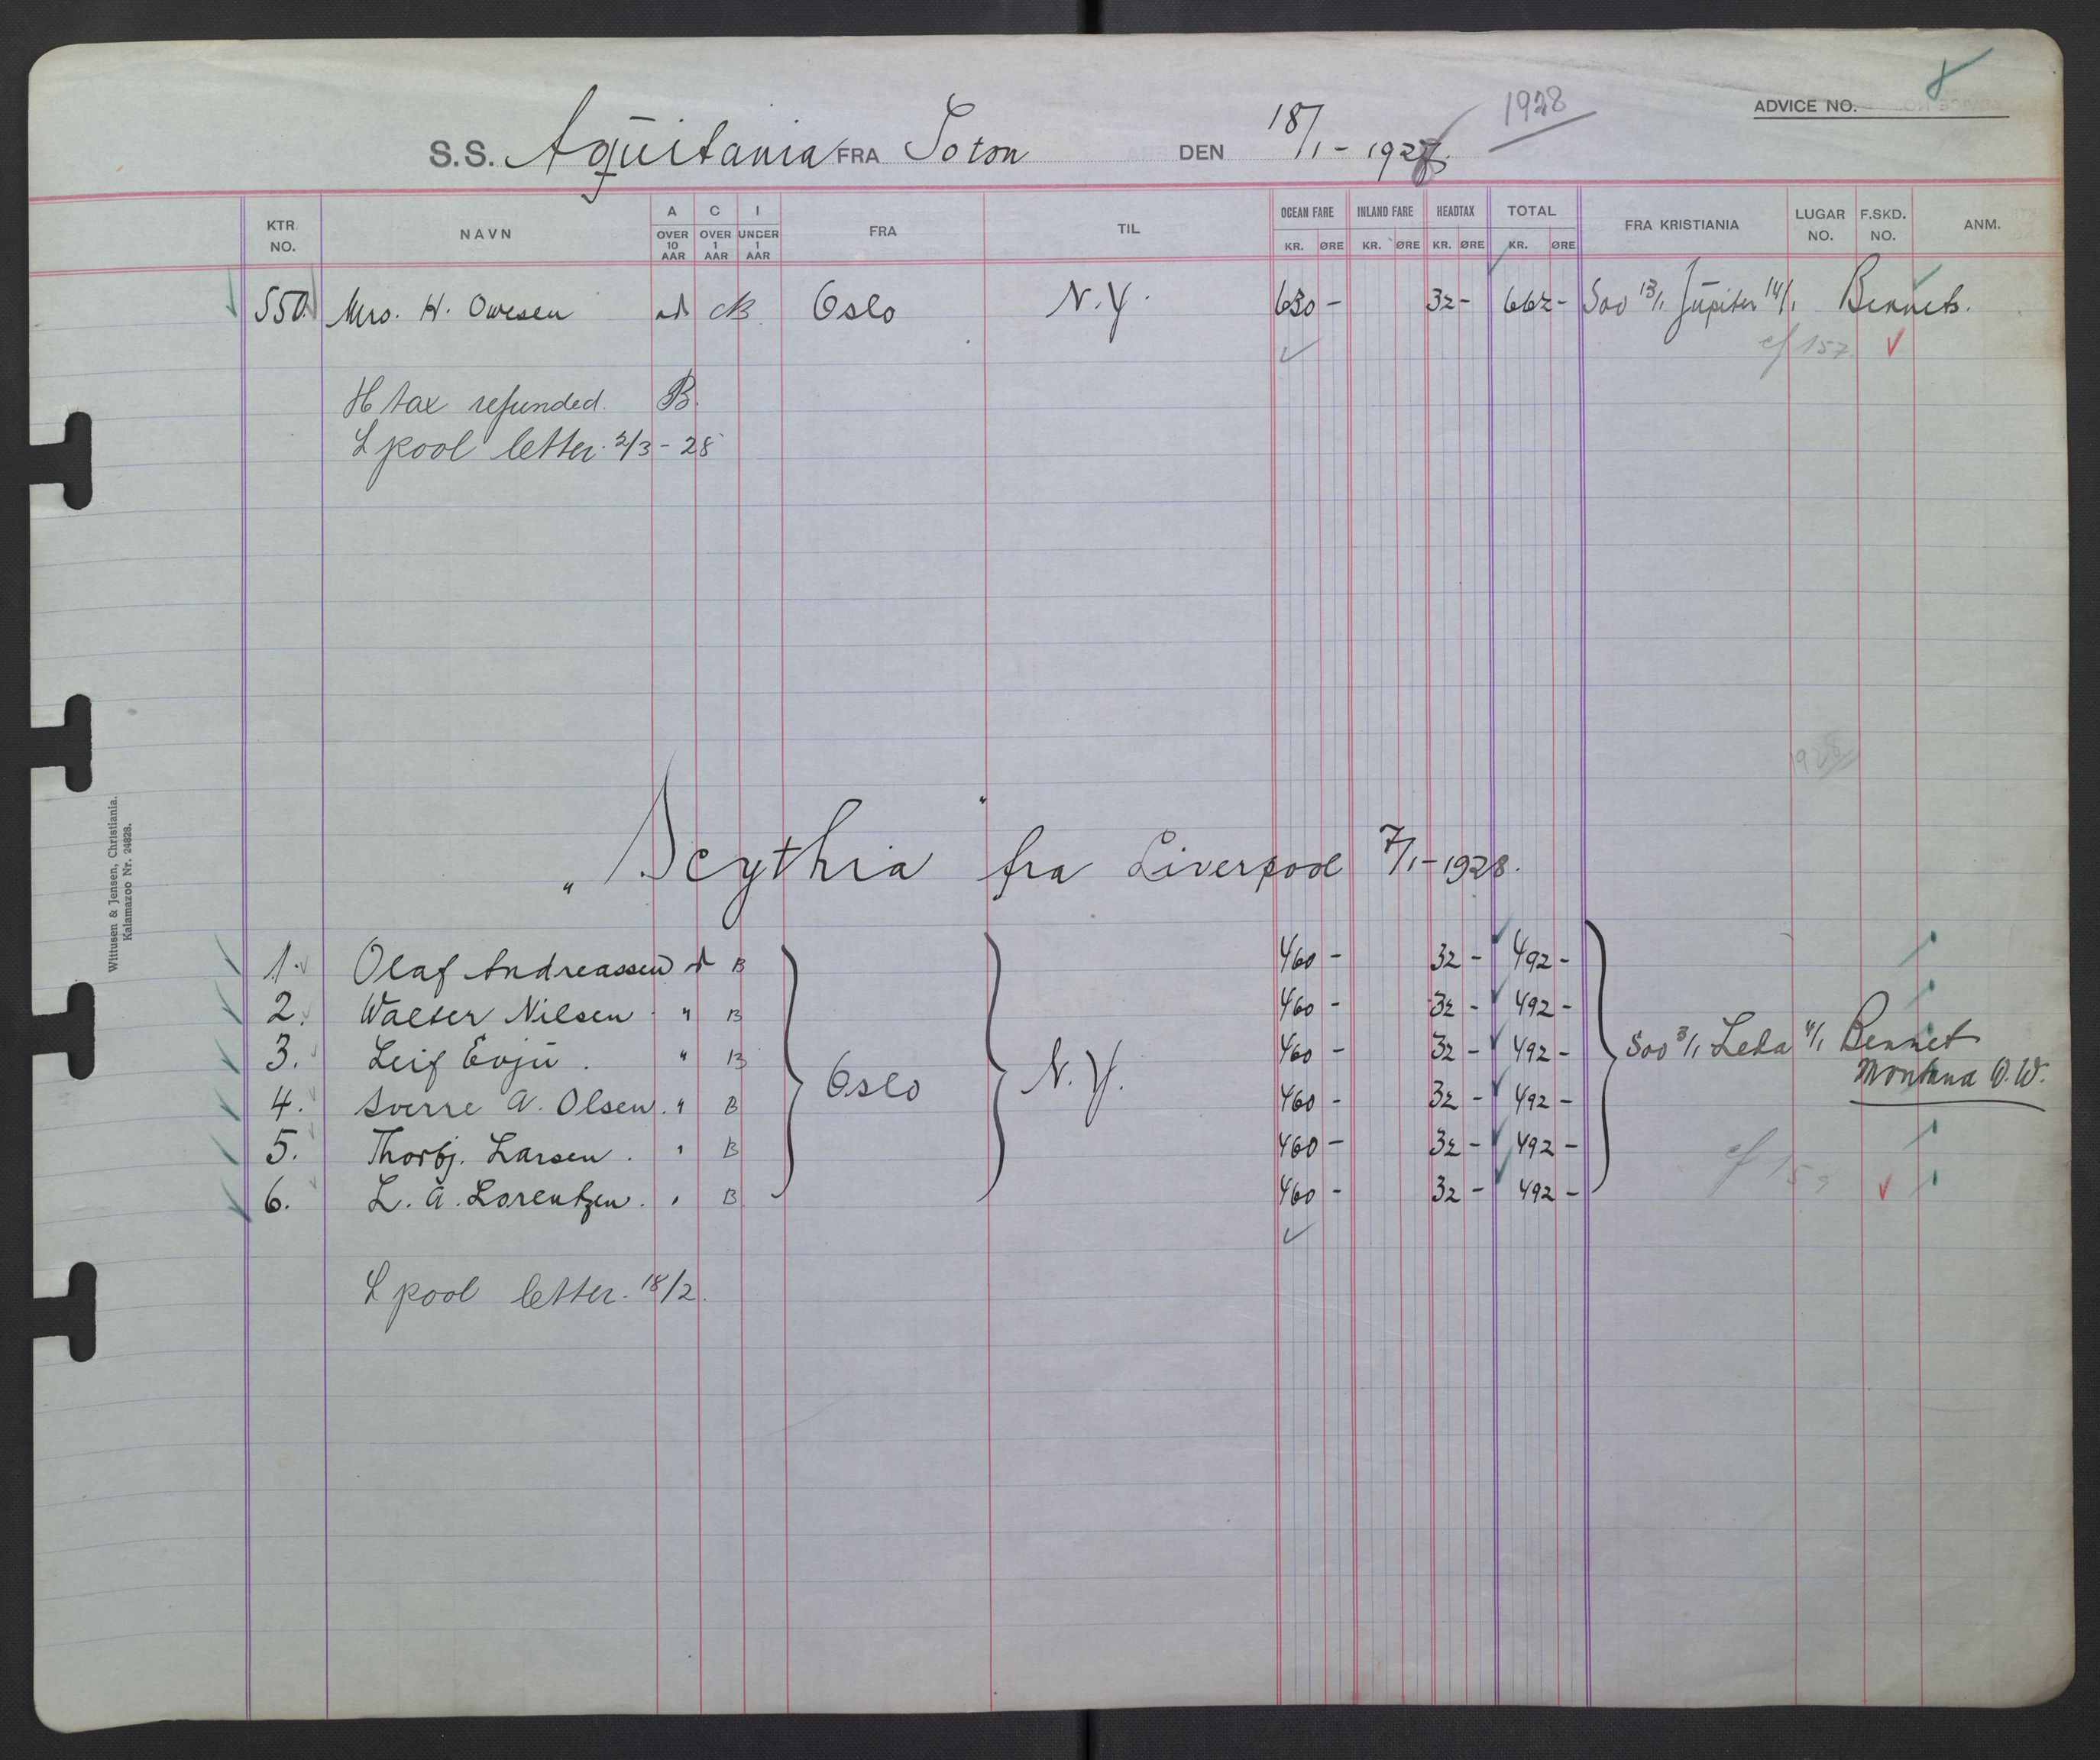 1928
ADVICE NO. 8
S.S. Aquitania FRA Soton DEN 18/1 - 1928.
KTR. NO. NAVN A OVER 10 AAR C OVER 1 AAR I UNDER 1 AAR FRA TIL OCEAN FARE KR. ØRE INLAND FARE KR. ØRE HEADTAX KR. ØRE TOTAL KR. ØRE FRA KRISTIANIA LUGAR NO. F.SKD. NO. ANM.
550. Mrs. H. Owesen ad Oslo N.Y. 630 - 32 - 662 - Soo 13/1 Jupiter 14/1 Bennets.
cf 157
H tax refunded. B.
L pool letter. 2/3 - 28
1928
"Scythia" fra Liverpool 7/1 - 1928.
1. Olaf Andreassen B 460 - 32 - 492 -
2. Walter Nilsen " B 460 - 32 - 492 -
3. Leif Evju. " B 460 - 32 - 492 - Soo 3/1 Leda 4/1 Bennet
Montana O.W.
4. Sverre A. Olsen. " B Oslo N.Y. 460 - 32 - 492 -
5. Thorbj. Larsen. " B 460 - 32 - 492 -
6. L. A. Lorentzen. " B 460 - 32 - 492 -
L pool letter. 18/2.
Wittusen & Jensen, Christiania.
Kalamazoo Nr. 24828.